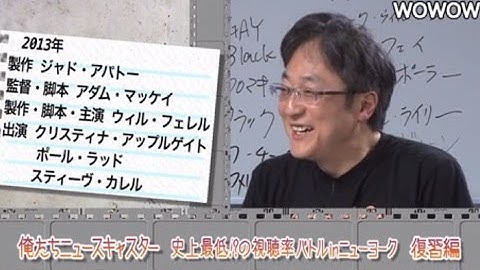 WOWOW
2013年
製作 ジャド・アパトー
監督・脚本 アダム・マッケイ
製作・脚本・主演 ウィル・フェレル
出演 クリスティナ・アップルゲイト
ポール・ラッド
スティーヴ・カレル
Black
フェイ
ポーラー
ライリー
俺たちニュースキャスター 史上最低!?の視聴率バトルinニューヨーク 復習編